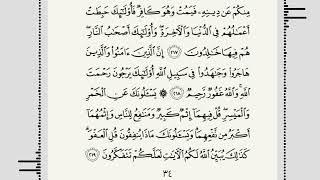 مِنكُمْ عَن دِينِهِۦ فَيَمُتْ وَهُوَ كَافِرٌ فَأُو۟لَـٰٓئِكَ حَبِطَتْ
أَعْمَـٰلُهُمْ فِى ٱلدُّنْيَا وَٱلْـَٔاخِرَةِ ۖ وَأُو۟لَـٰٓئِكَ أَصْحَـٰبُ ٱلنَّارِ ۖ
هُمْ فِيهَا خَـٰلِدُونَ ٢١٧ إِنَّ ٱلَّذِينَ ءَامَنُوا۟ وَٱلَّذِينَ
هَاجَرُوا۟ وَجَـٰهَدُوا۟ فِى سَبِيلِ ٱللَّهِ أُو۟لَـٰٓئِكَ يَرْجُونَ رَحْمَتَ
ٱللَّهِ ۚ وَٱللَّهُ غَفُورٌ رَّحِيمٌ ٢١٨ ۞ يَسْـَٔلُونَكَ عَنِ ٱلْخَمْرِ
وَٱلْمَيْسِرِ ۖ قُلْ فِيهِمَآ إِثْمٌ كَبِيرٌ وَمَنَـٰفِعُ لِلنَّاسِ وَإِثْمُهُمَآ
أَكْبَرُ مِن نَّفْعِهِمَا ۗ وَيَسْـَٔلُونَكَ مَاذَا يُنفِقُونَ قُلِ ٱلْعَفْوَ ۗ
كَذَٰلِكَ يُبَيِّنُ ٱللَّهُ لَكُمُ ٱلْـَٔايَـٰتِ لَعَلَّكُمْ تَتَفَكَّرُونَ ٢١٩
٣٤